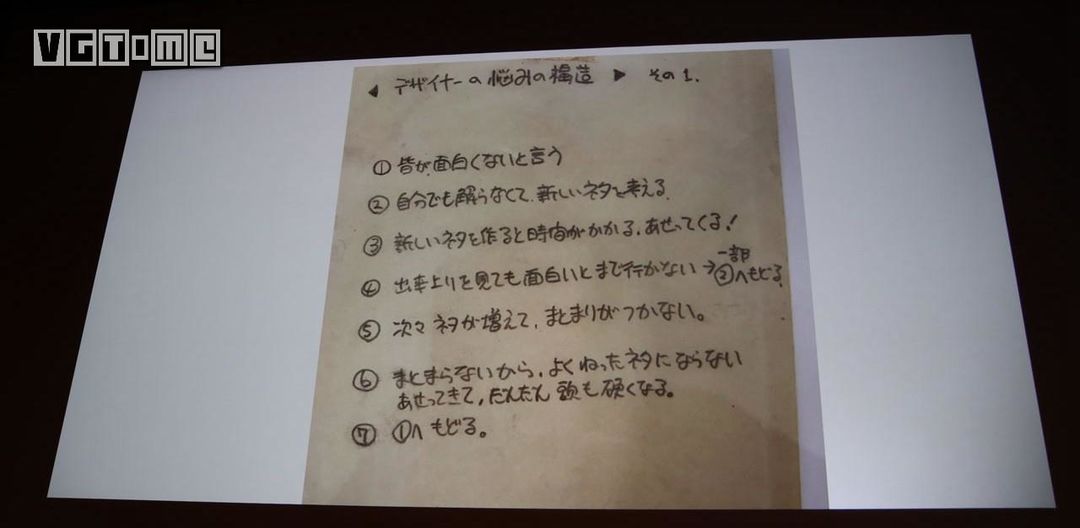 VGTIME
◀ デザイナーの悩みの構造 ▶ その1.
① 皆が面白くないと言う
② 自分でも解らなくて、新しいネタを考える
③ 新しいネタを作ると時間がかかる、あせってくる！
④ 出来上りを見ても面白いとまで行かない → 一部②へもどる
⑤ 次々ネタが増えて、まとまりがつかない。
⑥ まとまらないから、よくねったネタにならない
あせってきて、だんだん頭も硬くなる。
⑦ ①へもどる。